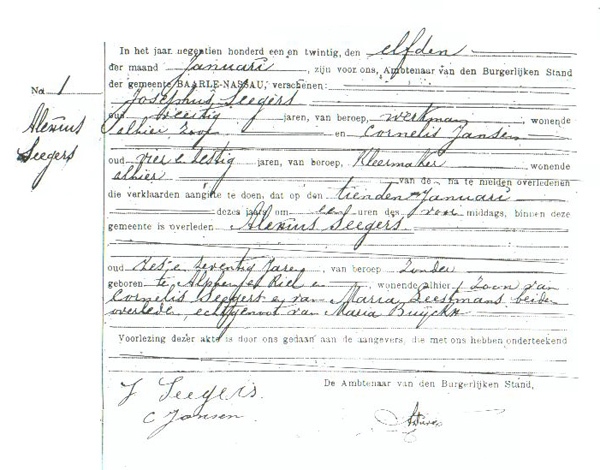 No 1
Alexius
Seegers
In het jaar negentien honderd een en twintig, den elfden
der maand Januari, zijn voor ons, Ambtenaar van den Burgerlijken Stand
der gemeente BAARLE-NASSAU, verschenen:
Josephus Seegers
oud veertig jaren, van beroep, werkman wonende
alhier zoon en Cornelis Jansen
oud vier e zestig jaren, van beroep, Kleermaker wonende
alhier van de na te melden overledenen
die verklaarden aangifte te doen, dat op den tienden Januari
dezes jaars om een uren des voor middags, binnen deze
gemeente is overleden Alexius Seegers
oud zes e zeventig Jaren, van beroep Zonder
geboren te Alphen en Riel en wonende alhier, Zoon van
Cornelis Seegers e van Maria Leestmans beiden
overleden, echtgenoot van Maria Buyckx
Voorlezing dezer akte is door ons gedaan aan de aangevers, die met ons hebben onderteekend
J Seegers.
C Jansen
De Ambtenaar van den Burgerlijken Stand,